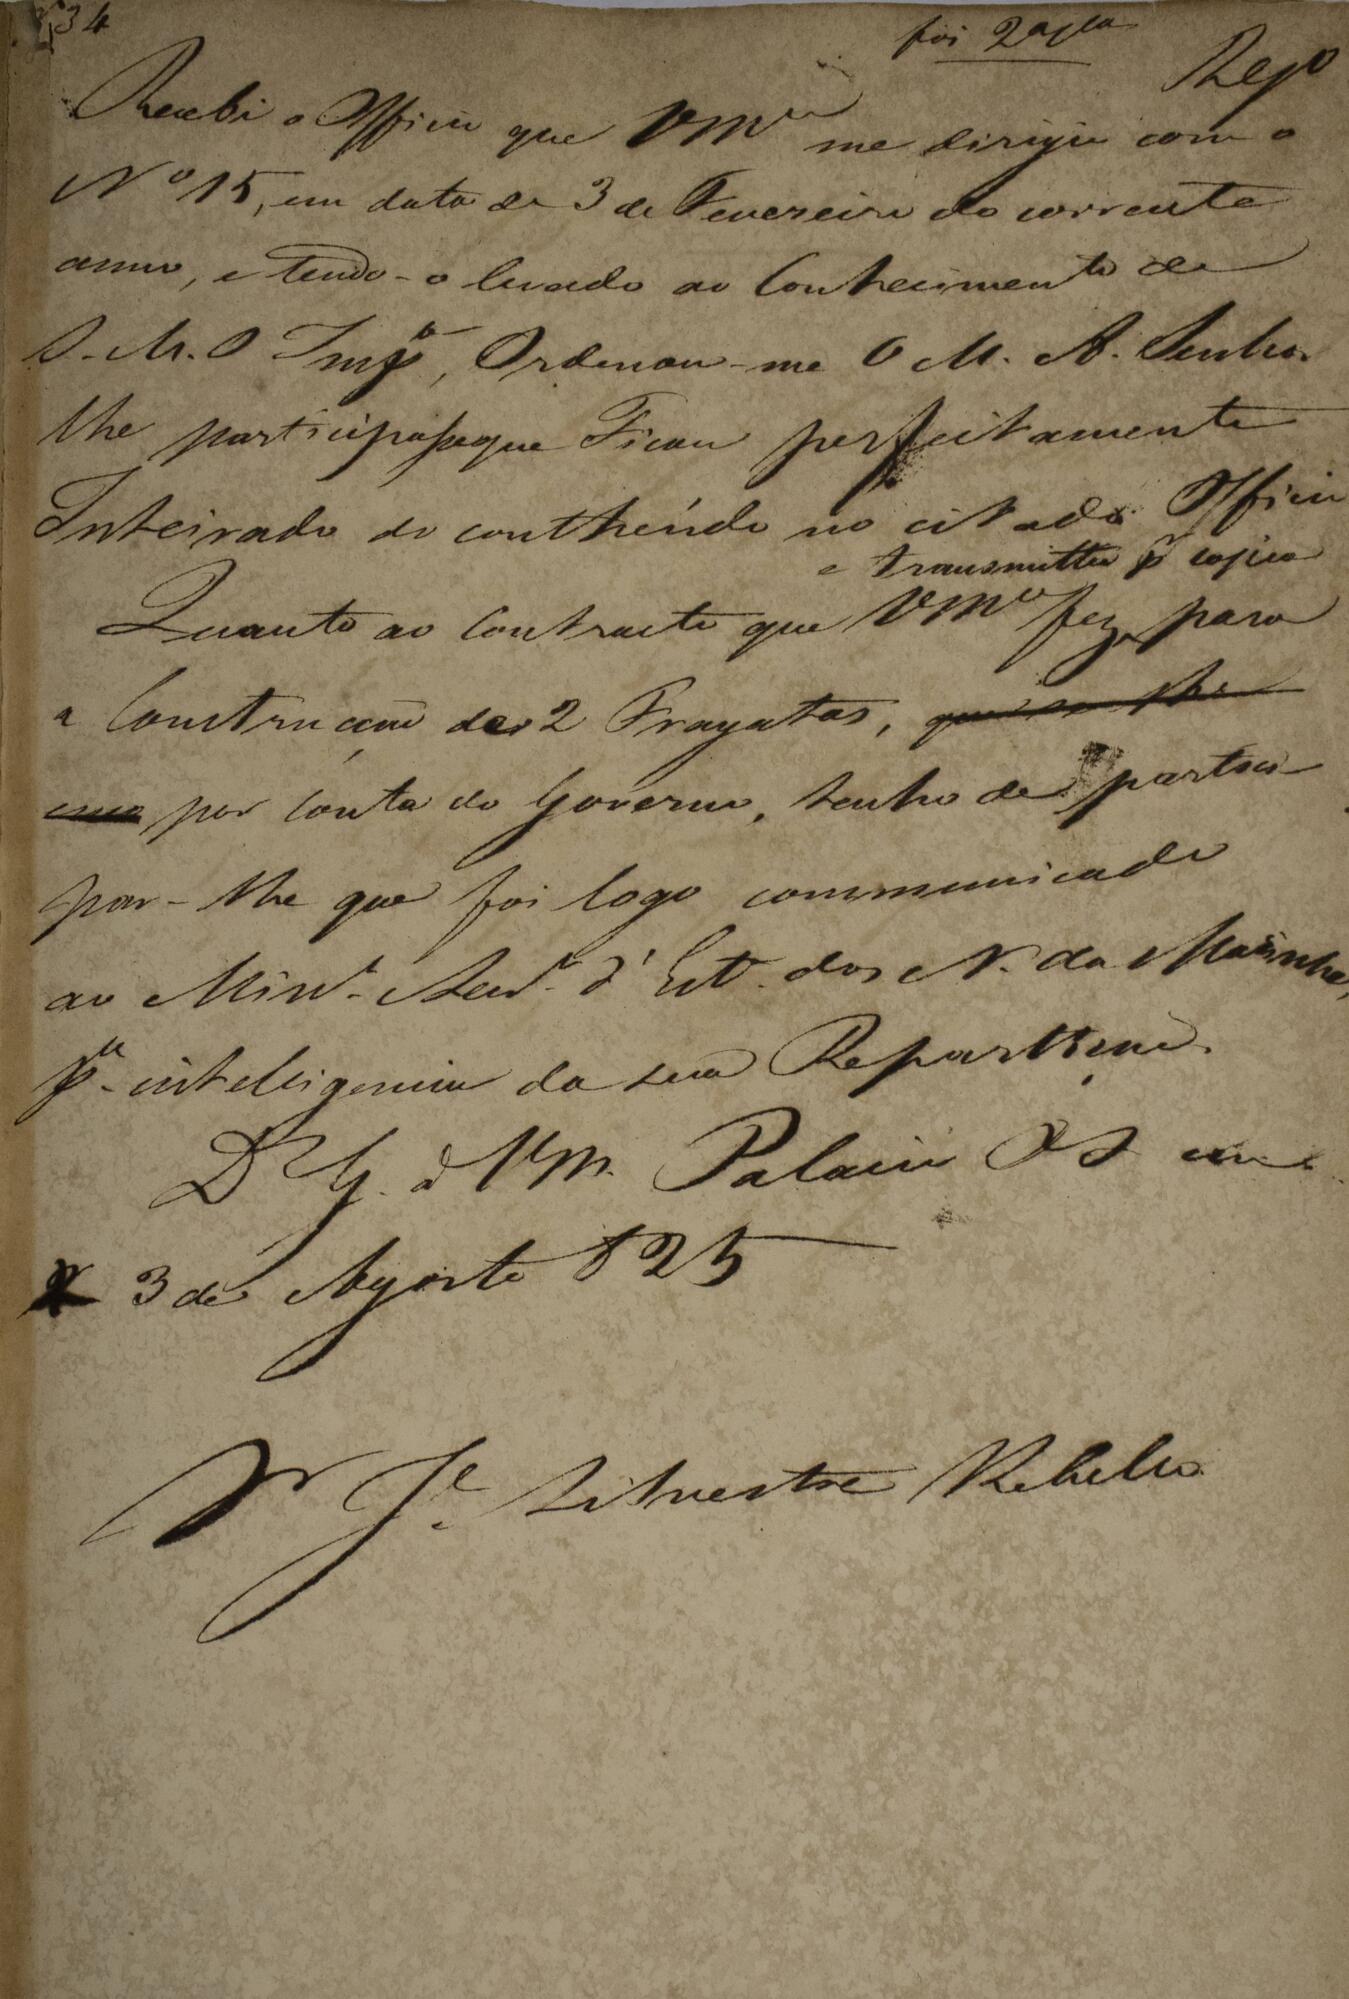 34
foi 2ª via
Reg.º
Recebi o Officio que VM.ce me dirigio com o
Nº 15, em data de 3 de Fevereiro do corrente
anno, e tendo-o levado ao Conhecimento de
S. M. O Imp.or, Ordenou-me O M. A. Senhor
lhe participasse que Ficou perfeitamente
Inteirado do conthéudo no citado Officio
e transmitteu p.r copia
Quanto ao Contracto que VM.ce fez, para
a Construcção de 2 Fragatas,
por conta do Governo, tenho de partici-
par-lhe que foi logo communicado
ao Min.º Secr.º d'Est. dos N. da Marinha,
p.a intelligencia da sua Repartição.
D.s G. a VM. Palacio em
3 de Agosto 825
S.r J.e Silvestre Rebello